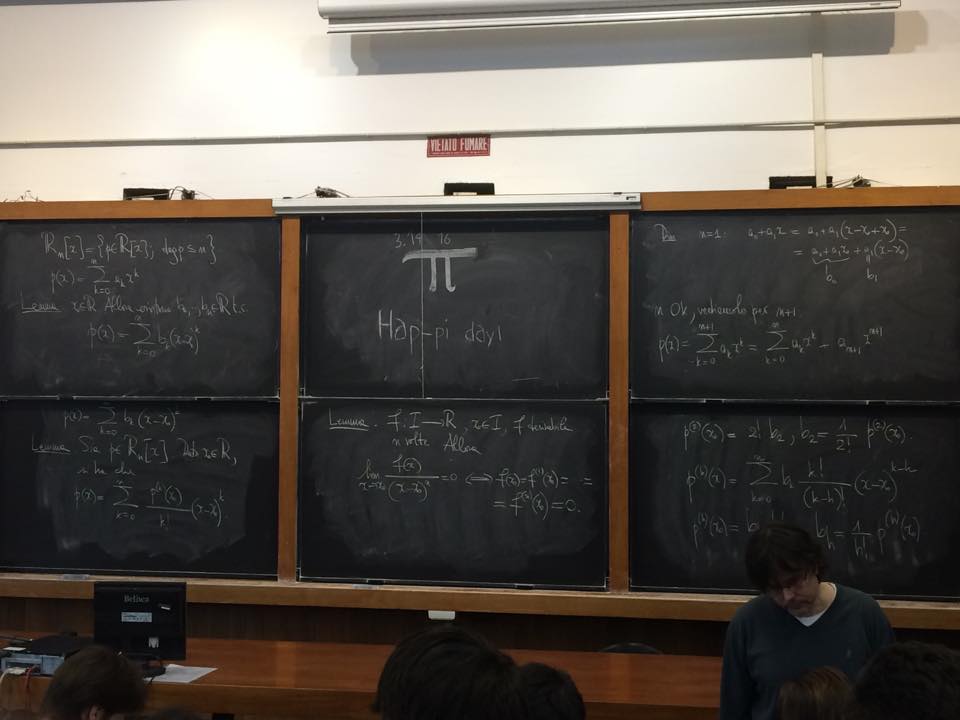 VIETATO FUMARE
ℝₙ[x] = {p∈ℝ[x]; deg p ≤ n}
p(x) = ∑_{k=0}^{n} aₖ xᵏ
Lemma x₀∈ℝ Allora esistono b₀,..,bₙ∈ℝ t.c.
p(x) = ∑_{k=0}^{n} bₖ (x-x₀)ᵏ
p(x) = ∑_{k=0}^{n} bₖ (x-x₀)ᵏ
Lemma Sia p∈ℝₙ[x] Dato x₀∈ℝ,
si ha che
p(x) = ∑_{k=0}^{n} p⁽ᵏ⁾(x₀)/k! (x-x₀)ᵏ
3.14 16
π
Hap-pi day!
Lemma f: I → ℝ, x₀∈I, f derivabile
n volte Allora
lim_{x→x₀} f(x)/(x-x₀)ⁿ = 0 ⟺ f(x₀) = f⁽¹⁾(x₀) = =
= f⁽ⁿ⁾(x₀) = 0.
Dim n=1: a₀+a₁x = a₀+a₁(x-x₀+x₀) =
= a₀+a₁x₀ + a₁(x-x₀)
b₀ b₁
n Ok, vediamolo per n+1
p(x) = ∑_{k=0}^{n+1} aₖ xᵏ = ∑_{k=0}^{n} aₖ xᵏ - aₙ₊₁ xⁿ⁺¹
p⁽²⁾(x₀) = 2! b₂, b₂ = 1/2! p⁽²⁾(x₀).
p⁽ʰ⁾(x) = ∑_{k=0}^{n} bₖ k!/(k-h)! (x-x₀)ᵏ⁻ʰ
p⁽ʰ⁾(x₀) = bₕ = 1/h! p⁽ʰ⁾(x₀).
Belinea